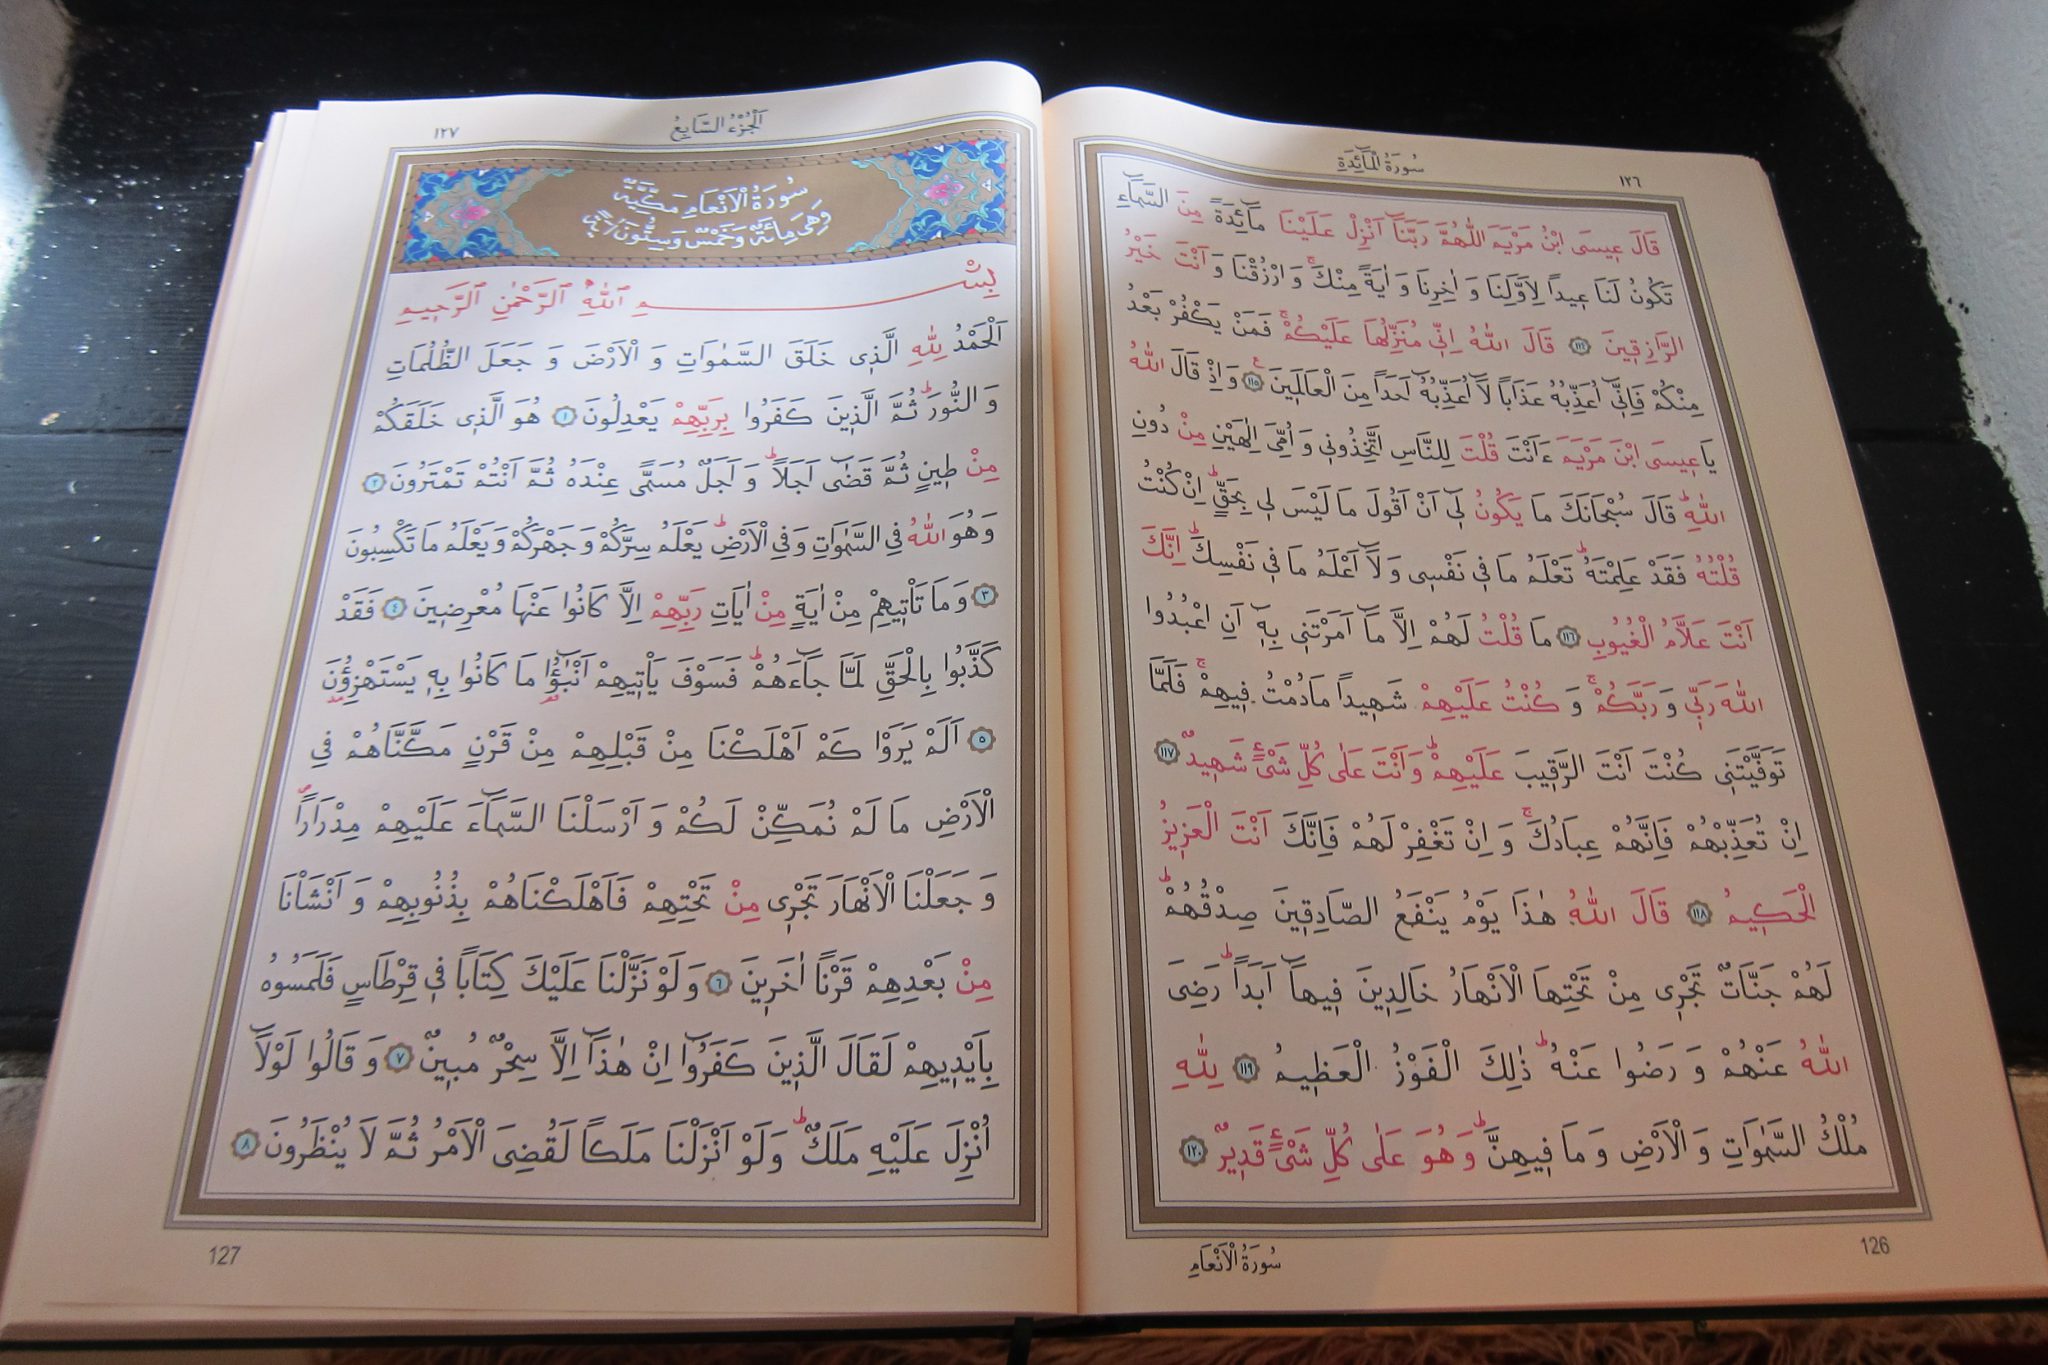 سُورَةُ الْمَائِدَةِ
١٢٦
قَالَ عِيسَى ابْنُ مَرْيَمَ اللّٰهُمَّ رَبَّنَٓا اَنْزِلْ عَلَيْنَا مَٓائِدَةً مِنَ السَّمَٓاءِ
تَكُونُ لَنَا عِيداً لِاَوَّلِنَا وَ اٰخِرِنَا وَ اٰيَةً مِنْكَۚ وَ ارْزُقْنَا وَ اَنْتَ خَيْرُ
الرَّازِقِينَ ﴿١١٤﴾ قَالَ اللّٰهُ اِنّ۪ي مُنَزِّلُهَا عَلَيْكُمْۚ فَمَنْ يَكْفُرْ بَعْدُ
مِنْكُمْ فَاِنّ۪ٓي اُعَذِّبُهُ عَذَاباً لَٓا اُعَذِّبُهُٓ اَحَداً مِنَ الْعَالَمِينَ ﴿١١٥﴾ ع وَ اِذْ قَالَ اللّٰهُ
يَا عِيسَى ابْنَ مَرْيَمَ ءَاَنْتَ قُلْتَ لِلنَّاسِ اتَّخِذُونِي وَ اُمِّيَ اِلٰهَيْنِ مِنْ دُونِ
اللّٰهِؕ قَالَ سُبْحَانَكَ مَا يَكُونُ ل۪ٓي اَنْ اَقُولَ مَا لَيْسَ لِي بِحَقٍّؕ اِنْ كُنْتُ
قُلْتُهُ فَقَدْ عَلِمْتَهُؕ تَعْلَمُ مَا فِي نَفْسِي وَ لَٓا اَعْلَمُ مَا فِي نَفْسِكَؕ اِنَّكَ
اَنْتَ عَلَّامُ الْغُيُوبِ ﴿١١٦﴾ مَا قُلْتُ لَهُمْ اِلَّا مَٓا اَمَرْتَنِي بِه۪ٓ اَنِ اعْبُدُوا
اللّٰهَ رَبِّي وَ رَبَّكُمْۚ وَ كُنْتُ عَلَيْهِمْ شَهِيداً مَا دُمْتُ فِيهِمْۚ فَلَمَّا
تَوَفَّيْتَنِي كُنْتَ اَنْتَ الرَّقِيبَ عَلَيْهِمْؕ وَ اَنْتَ عَلٰى كُلِّ شَيْءٍ شَهِيدٌ ﴿١١٧﴾
اِنْ تُعَذِّبْهُمْ فَاِنَّهُمْ عِبَادُكَۚ وَ اِنْ تَغْفِرْ لَهُمْ فَاِنَّكَ اَنْتَ الْعَزِيزُ
الْحَكِيمُ ﴿١١٨﴾ قَالَ اللّٰهُ هٰذَا يَوْمُ يَنْفَعُ الصَّادِقِينَ صِدْقُهُمْؕ
لَهُمْ جَنَّاتٌ تَجْرِي مِنْ تَحْتِهَا الْاَنْهَارُ خَالِدِينَ فِيهَٓا اَبَداًؕ رَضِيَ
اللّٰهُ عَنْهُمْ وَ رَضُوا عَنْهُؕ ذٰلِكَ الْفَوْزُ الْعَظِيمُ ﴿١١٩﴾ لِلّٰهِ
مُلْكُ السَّمٰوَاتِ وَ الْاَرْضِ وَ مَا فِيهِنَّؕ وَ هُوَ عَلٰى كُلِّ شَيْءٍ قَدِيرٌ ﴿١٢٠﴾
سُورَةُ الْاَنْعَامِ
126
اَلْجُزْءُ السَّابِعُ
١٢٧
سُورَةُ الْاَنْعَامِ مَكِّيَّةٌ
وَهِيَ مِائَةٌ وَخَمْسٌ وَسِتُّونَ اٰيَةً
بِسْمِ اللّٰهِ الرَّحْمٰنِ الرَّحِيمِ
اَلْحَمْدُ لِلّٰهِ الَّذِي خَلَقَ السَّمٰوَاتِ وَ الْاَرْضَ وَ جَعَلَ الظُّلُمَاتِ
وَ النُّورَؕ ثُمَّ الَّذِينَ كَفَرُوا بِرَبِّهِمْ يَعْدِلُونَ ﴿١﴾ هُوَ الَّذِي خَلَقَكُمْ
مِنْ طِينٍ ثُمَّ قَضٰٓى اَجَلاًؕ وَ اَجَلٌ مُسَمًّى عِنْدَهُ ثُمَّ اَنْتُمْ تَمْتَرُونَ ﴿٢﴾
وَ هُوَ اللّٰهُ فِي السَّمٰوَاتِ وَ فِي الْاَرْضِؕ يَعْلَمُ سِرَّكُمْ وَ جَهْرَكُمْ وَ يَعْلَمُ مَا تَكْسِبُونَ
﴿٣﴾ وَ مَا تَأْتِيهِمْ مِنْ اٰيَةٍ مِنْ اٰيَاتِ رَبِّهِمْ اِلَّا كَانُوا عَنْهَا مُعْرِضِينَ ﴿٤﴾ فَقَدْ
كَذَّبُوا بِالْحَقِّ لَمَّا جَٓاءَهُمْؕ فَسَوْفَ يَأْتِيهِمْ اَنْبٰٓؤُا مَا كَانُوا بِهِ يَسْتَهْزِؤُنَ
﴿٥﴾ اَلَمْ يَرَوْا كَمْ اَهْلَكْنَا مِنْ قَبْلِهِمْ مِنْ قَرْنٍ مَكَّنَّاهُمْ فِي
الْاَرْضِ مَا لَمْ نُمَكِّنْ لَكُمْ وَ اَرْسَلْنَا السَّمَٓاءَ عَلَيْهِمْ مِدْرَاراً
وَ جَعَلْنَا الْاَنْهَارَ تَجْرِي مِنْ تَحْتِهِمْ فَاَهْلَكْنَاهُمْ بِذُنُوبِهِمْ وَ اَنْشَأْنَا
مِنْ بَعْدِهِمْ قَرْناً اٰخَرِينَ ﴿٦﴾ وَ لَوْ نَزَّلْنَا عَلَيْكَ كِتَاباً فِي قِرْطَاسٍ فَلَمَسُوهُ
بِاَيْدِيهِمْ لَقَالَ الَّذِينَ كَفَرُٓوا اِنْ هٰذَٓا اِلَّا سِحْرٌ مُبِينٌ ﴿٧﴾ وَ قَالُوا لَوْلَٓا
اُنْزِلَ عَلَيْهِ مَلَكٌؕ وَلَوْ اَنْزَلْنَا مَلَكاً لَقُضِيَ الْاَمْرُ ثُمَّ لَا يُنْظَرُونَ ﴿٨﴾
127